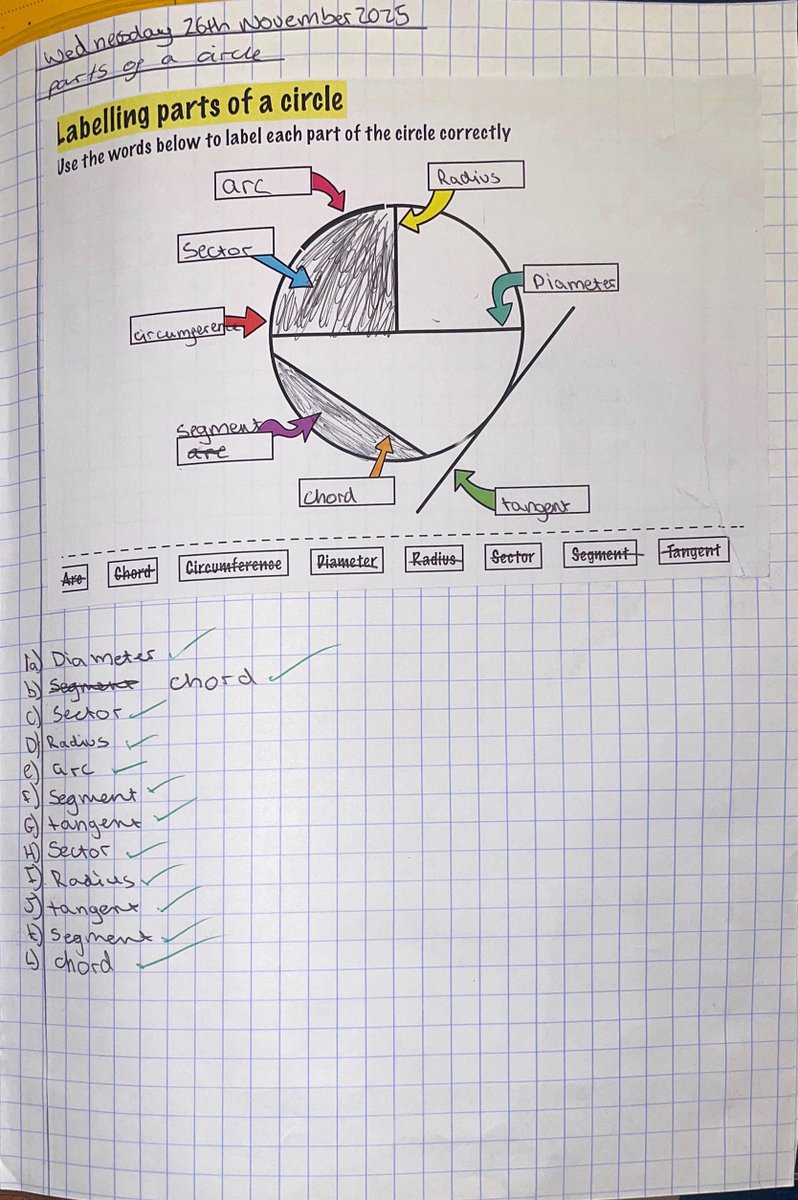 Wednesday 26th November 2025
parts of a circle
Labelling parts of a circle
Use the words below to label each part of the circle correctly
arc
Radius
Sector
Diameter
circumference
Segment
arc
chord
tangent
Arc Chord Circumference Diameter Radius Sector Segment Tangent
1a) Diameter
b) Segment chord
c) Sector
D) Radius
e) arc
F) Segment
G) tangent
H) Sector
I) Radius
J) tangent
K) Segment
L) chord